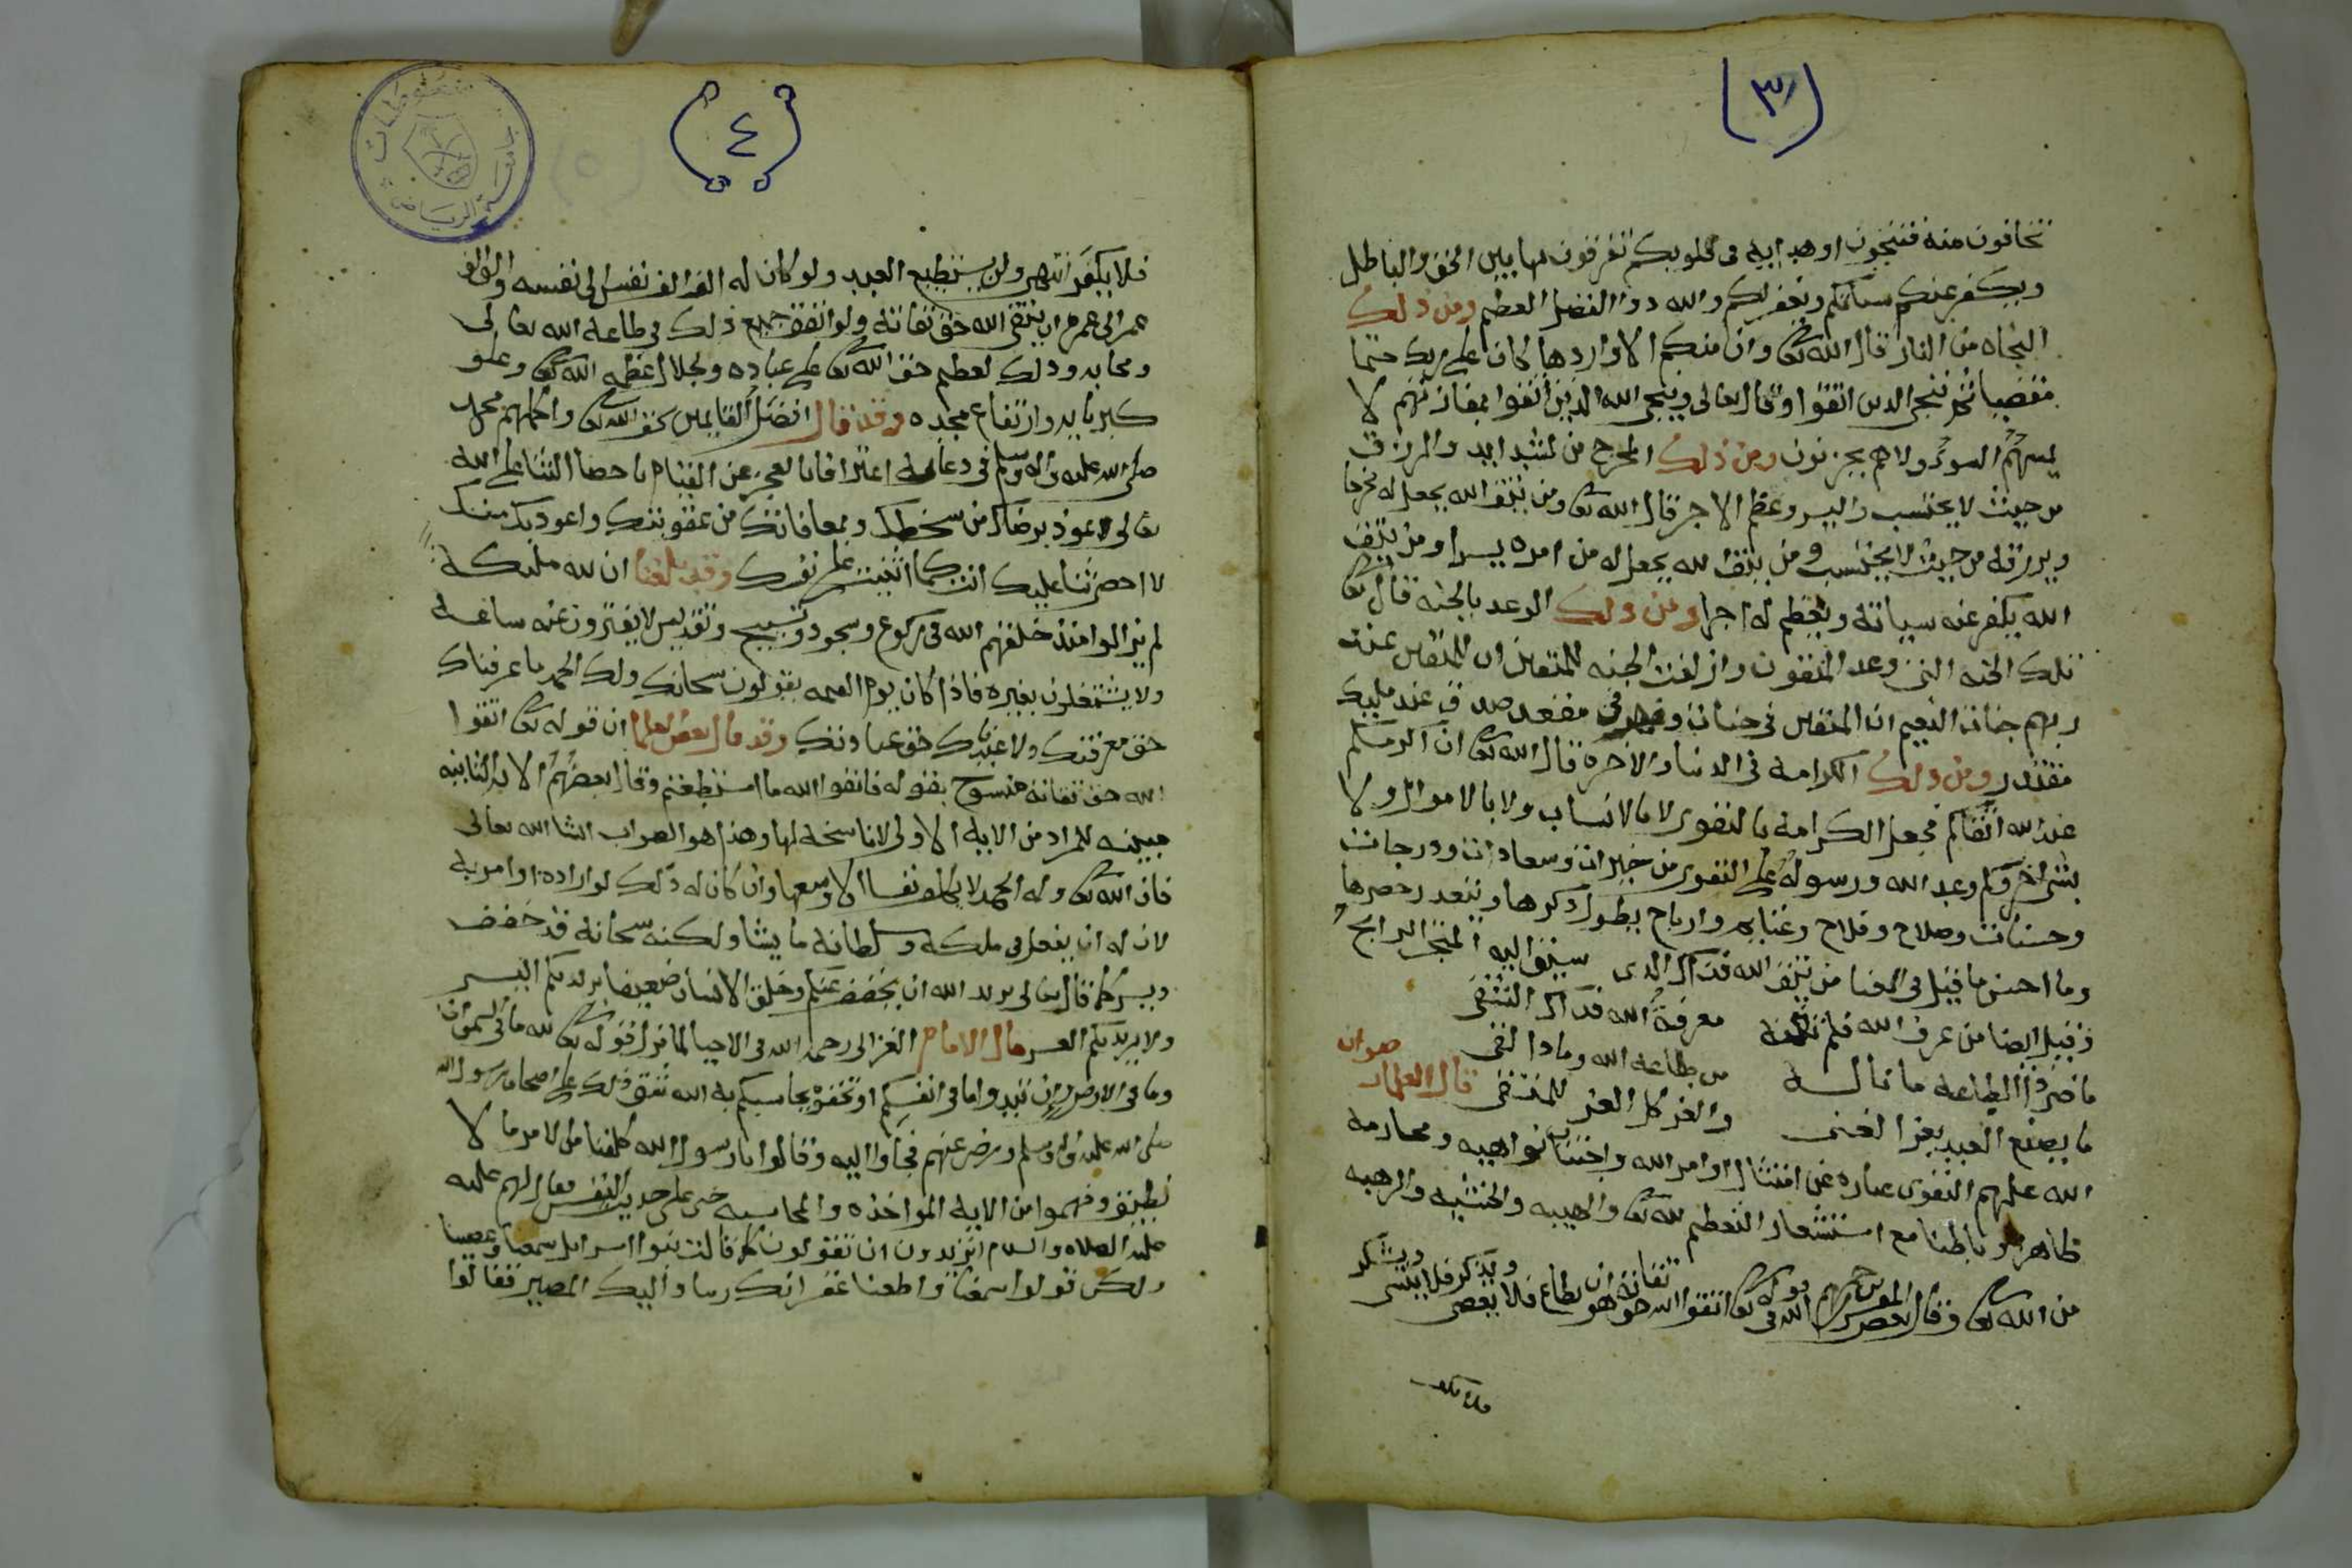 (٣)
تخافون منه فتنجون او هدايه في قلوبكم تفرقون بها بين الحق والباطل
ويكفر عنكم سياتكم ويغفر لكم والله ذوا الفضل العظيم ومن ذلك
النجاه من النار قال الله تعالى وان منكم الا واردها كان على ربك حتما
مقضيا ثم ننجي الذين اتقوا وقال تعالى وينجي الله الذين اتقوا بمفازتهم لا
يمسهم السوء ولا هم يحزنون ومن ذلك المخرج من الشدايد والرزق
من حيث لا يحتسب واليسر وعظم الاجر قال الله تعالى ومن يتق الله يجعل له مخرجا
ويرزقه من حيث لا يحتسب ومن يتق الله يجعل له من امره يسرا ومن يتق
الله يكفر عنه سياته ويعظم له اجرا ومن ذلك الوعد بالجنه قال تعالى
تلك الجنه التي وعد المتقون وازلفت الجنه للمتقين ان للمتقين عند
ربهم جنات النعيم ان المتقين في جنات ونهر في مقعد صدق عند مليك
مقتدر ومن ذلك الكرامة في الدنيا والاخرة قال الله تعالى ان اكرمكم
عند الله اتقاكم فجعل الكرامة بالتقوى لا بالانساب ولا بالاموال ولا
بشي اخر وكم وعد الله ورسوله على التقوى من خيرات وسعادات ودرجات
وحسنات وصلاح وفلاح وغنايم وارباح يطول ذكرها ويتعذر حصرها
وما احسن ما قيل في المعنا من يتق الله فذاك الذي سيق اليه المتجر الرابح
وقيل ايضا من عرف الله فلم تغنه معرفة الله فذاك الشقي
ما ضر ذا الطاعة ما ناله من طاعة الله وماذا لقي
ما يصنع العبد بعز الغنى والعز كل العز للمتقي قال العلما رضوان
الله عليهم التقوى عباره عن امتثال اوامر الله واجتناب نواهيه ومحارمه
ظاهرا وباطنا مع استشعار التعظيم لله تعالى والهيبه والخشيه والرهبه
من الله تعالى وقال بعض المفسرين رحمهم الله في قوله تعالى اتقوا الله حق تقاته هو ان يطاع فلا يعصى ويذكر فلا ينسى ويشكر
(٤)
فلا يكفر انتهى ولن يستطيع العبد ولو كان له الف الف نفس الى نفسه والف الف
عمر الى عمره ان يتقي الله حق تقاته ولو انفق جميع ذلك في طاعة الله تعالى
ومحابه وذلك لعظيم حق الله تعالى على عباده ولجلال عظمة الله تعالى وعلو
كبريايه وارتفاع مجده وقد قال افضل القايمين بحق الله تعالى واكملهم محمد
صلى الله عليه واله وسلم في دعايه اعترافا بالعجز عن القيام باحصا الثنا على الله
تعالى اعوذ برضاك من سخطك وبمعافاتك من عقوبتك واعوذ بك منك
لا احصي ثنا عليك انت كما اثنيت على نفسك وقد بلغنا ان لله مليكة
لم يزالوا منذ خلقهم الله في ركوع وسجود وتسبيح وتقديس لا يفترون عنه ساعة
ولا يشتغلون بغيره فاذا كان يوم القيمه يقولون سحانك ولك الحمد ما عرفناك
حق معرفتك ولا عبدناك حق عبادتك وقد قال بعض العلما ان قوله تعالى اتقوا
الله حق تقاته منسوخ بقوله فاتقوا الله ما استطعتم وقال بعضهم الايه الثانيه
مبينه للمراد من الايه الاولى لا ناسخة لها وهذا هو الصواب انشا الله تعالى
فان الله تعالى وله الحمد لا يكلف نفسا الا وسعها وان كان له ذلك لو اراده او امر به
لان له ان يفعل في ملكه وسلطانه ما يشا ولكنه سحانه قد خفف
ويسر كما قال تعالى يريد الله ان يخفف عنكم وخلق الانسان ضعيفا يريد بكم اليسر
ولا يريد بكم العسر قال الامام الغزالي رحمه الله في الاحيا لما نزل قوله تعالى لله ما في السموات
وما في الارض وان تبدوا ما في انفسكم او تخفوه يحاسبكم به الله شق ذلك على اصحاب رسول الله
صلى الله عليه واله وسلم ورضي عنهم فجاوا اليه وقالوا يا رسول الله كلفنا من الامر ما لا
نطيق وفهموا من الايه المواخذه والمحاسبه حتى على حديث النفس فقال لهم عليه
عليه الصلاه والسلام اتريدون ان تقولون كما قالت بنوا اسرايل سمعنا وعصينا
ولكن قولوا سمعنا واطعنا غفرانك ربنا واليك المصير فقالوا